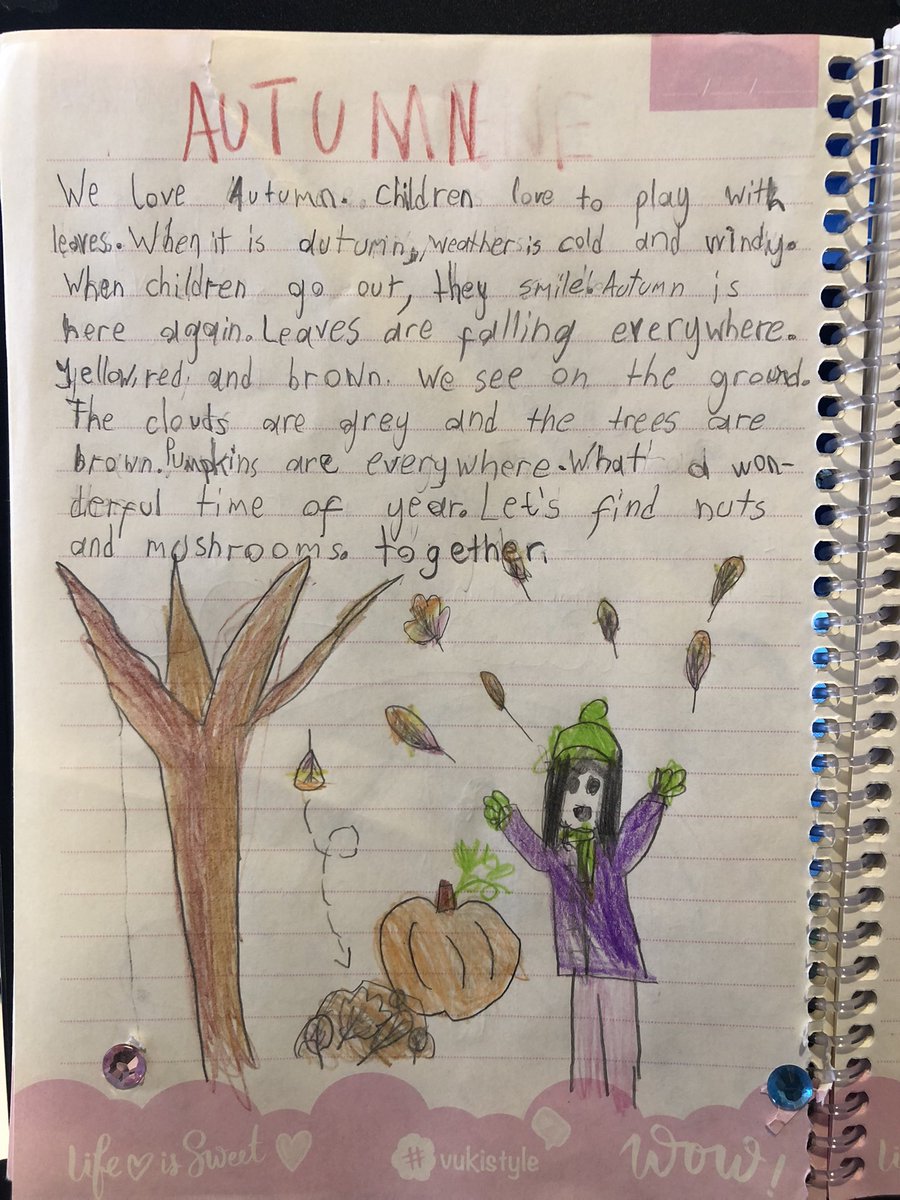 AUTUMN
We love Autumn. Children love to play with
leaves. When it is autumn, weather is cold and windy.
When children go out, they smile! Autumn is
here again. Leaves are falling everywhere.
Yellow, red, and brown. We see on the ground.
The clouds are grey and the trees are
brown. Pumpkins are everywhere. What a won-
derful time of year. Let's find nuts
and mushrooms. together.
life is Sweet # vukistyle wow!